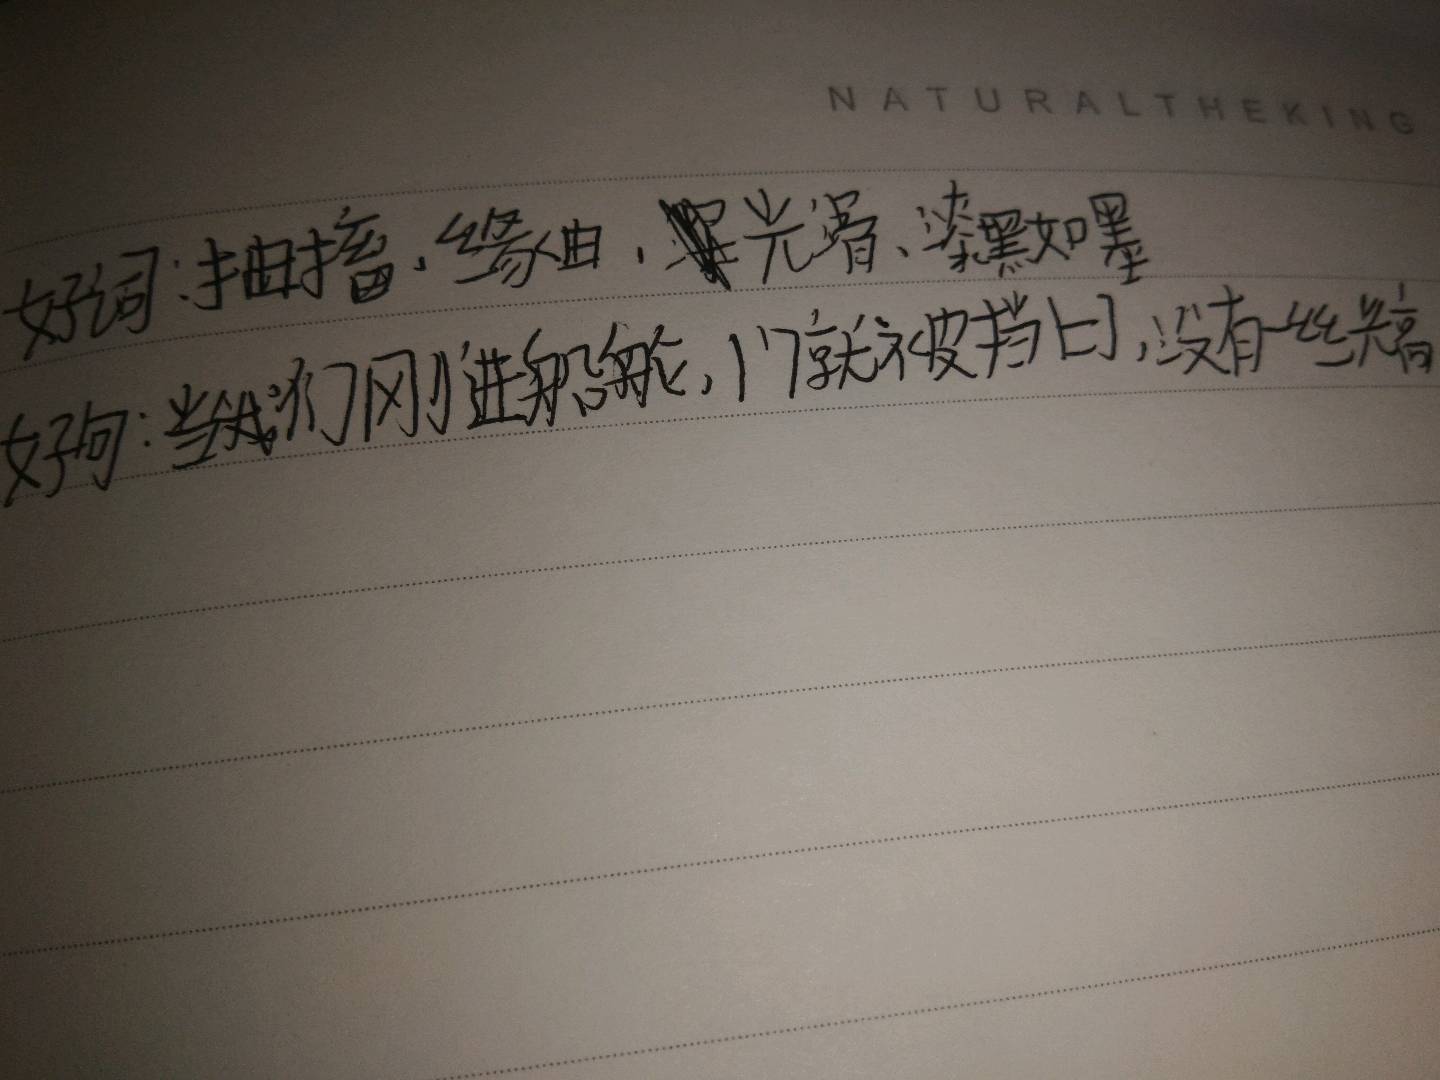 NATURALTHEKING
好词:抽搐、缘由,光滑、漆黑如墨
好句:当我们刚进船舱,门就被挡上了,没有一丝光亮